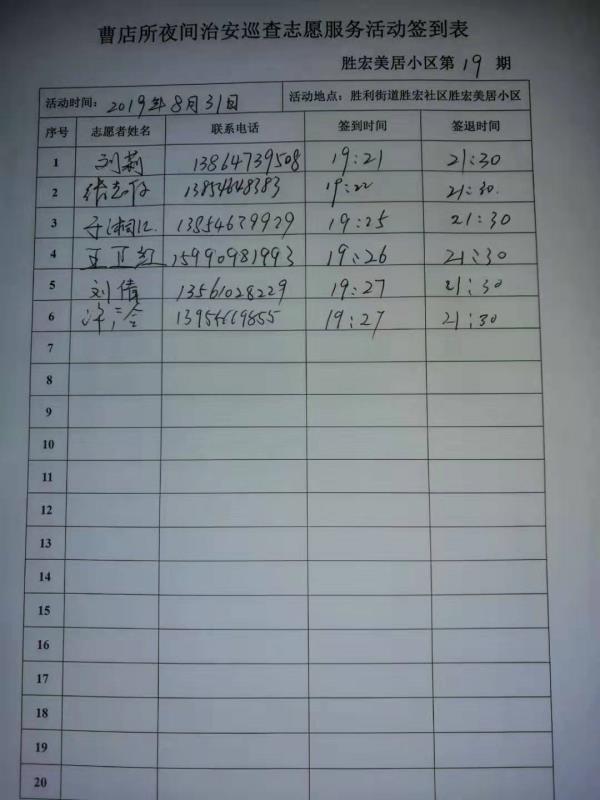 曹店所夜间治安巡查志愿服务活动签到表
胜宏美居小区第 19 期
活动时间: 2019年8月31日 活动地点: 胜利街道胜宏社区胜宏美居小区
序号 志愿者姓名 联系电话 签到时间 签退时间
1 刘莉 13864739508 19:21 21:30
2 13854648383 19:22 21:30
3 于湘江 13854679929 19:25 21:30
4 王卫红 15990981993 19:26 21:30
5 刘倩 13561028229 19:27 21:30
6 13954669855 19:27 21:30
7
8
9
10
11
12
13
14
15
16
17
18
19
20